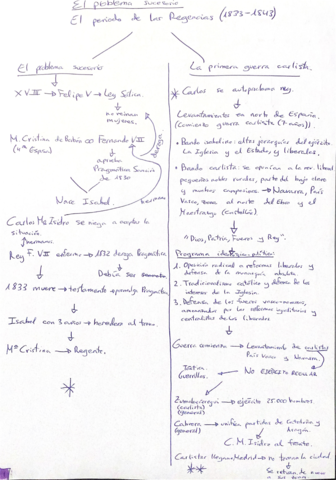 El problema sucesorio
El periodo de las Regencias (1833-1843)
El problema sucesorio
XVIII → Felipe V → Ley Sálica.
no reinan
mujeres.
M. Cristina de Borbón ∞ Fernando VII
(4ª Esposa)
deroga
aprueba
Pragmática Sanción
de 1830
Nace Isabel.
hermano
Carlos Mª Isidro se niega a aceptar la
situación.
Rey F. VII enfermo → 1832 deroga Pragmática
1833 muere → testamento Pragmática
Isabel con 3 años → heredera al trono.
Mª Cristina → Regente.
La primera guerra carlista.
* Carlos se autoproclama rey.
Levantamientos en norte de España,
(comienzo guerra carlista (7 años)).
• Bando carlismo: altas jerarquías del ejército
la Iglesia y el Estado, y liberales.
• Bando carlista: se oponían a la rev. liberal
pequeños nobles rurales, parte del bajo clero
y muchos campesinos → Navarra, País
Vasco, zonas al norte del Ebro y el
Maestrazgo (Castellón)
"Dios, Patria, Fueros y Rey".
Programa ideológico-político:
1. Oposición radical a reformas liberales y
defensa de la monarquía absoluta
2. Tradicionalismo católico y defensa de los
intereses de la Iglesia
3. Defensa de los fueros vasco-navarros,
amenazados por las reformas igualitarias y
centralistas de los liberales
Guerra comienza → Levantamiento de carlistas
País Vasco y Navarra.
Táctica
Guerrillas.
NO EJÉRCITO REGULAR
Zumalacárregui → ejército 25.000 hombres
(carlista)
(general)
Cabrera → unifica partidas de Cataluña y
(general)
Aragón.
C. M. Isidro al frente.
Carlistas llegan a Madrid → no toman la ciudad
Se retiran de nuevo